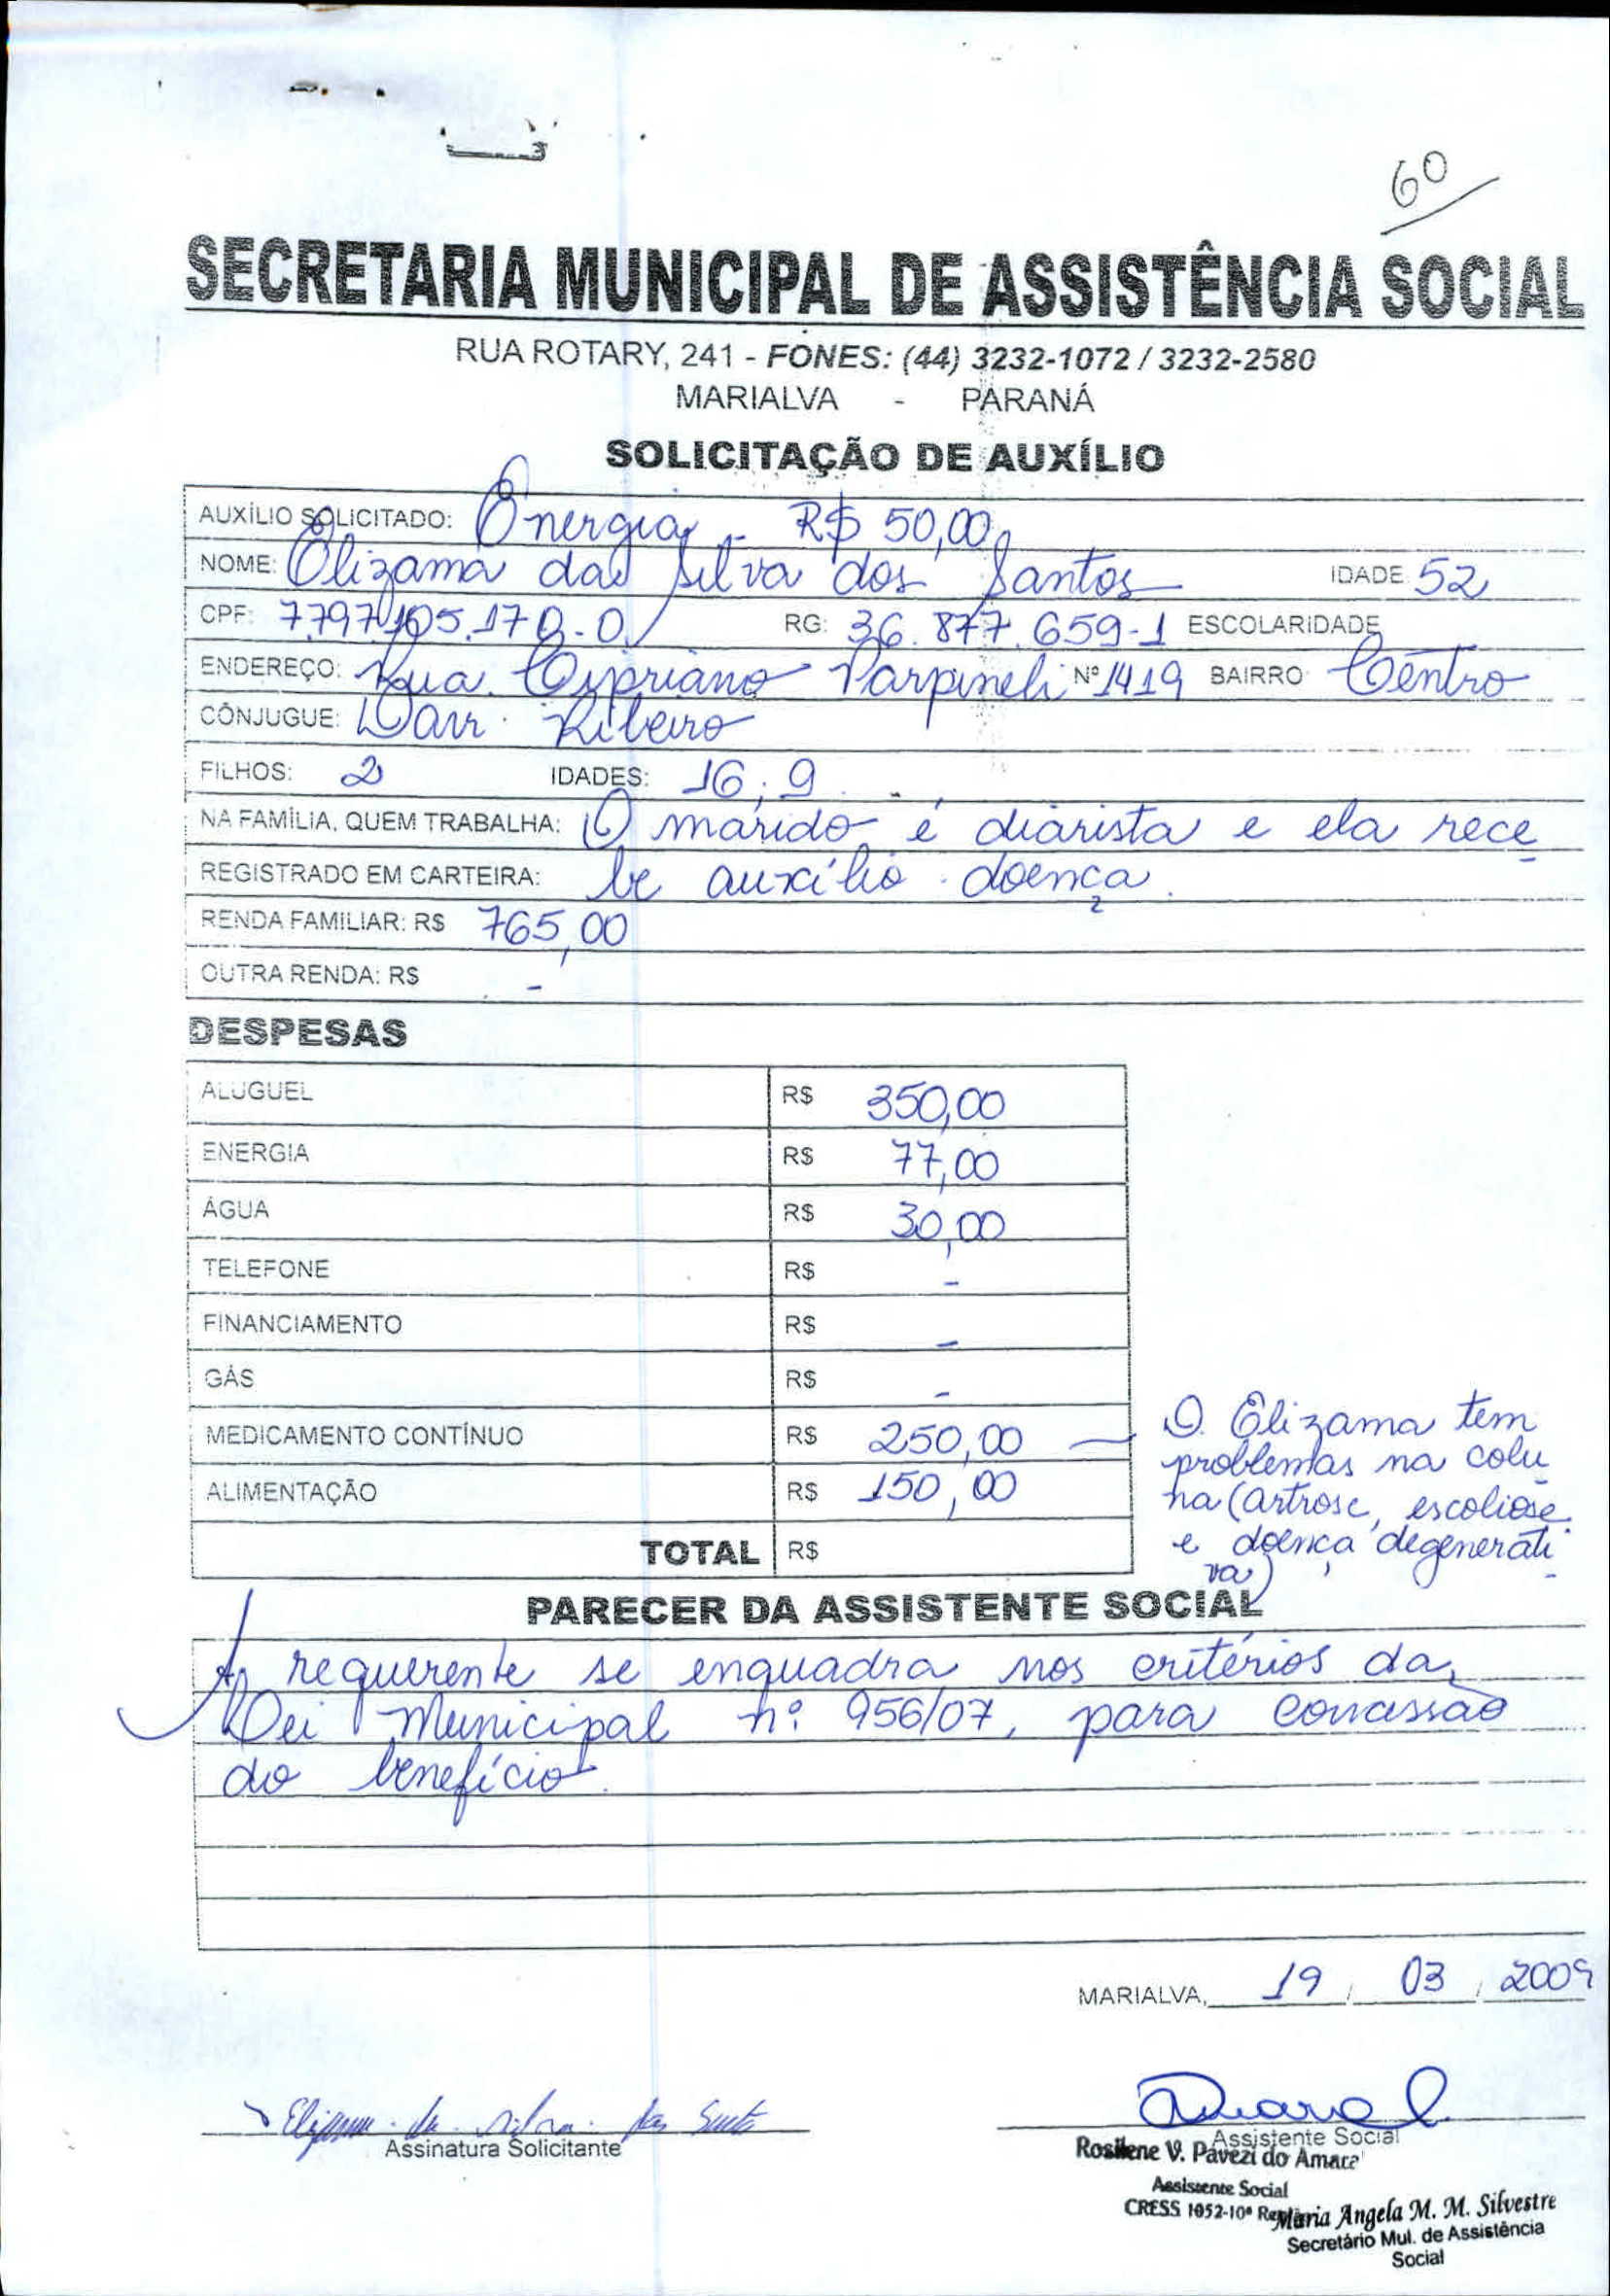 60
SECRETARIA MUNICIPAL DE ASSISTÊNCIA SOCIAL
RUA ROTARY, 241 - FONES: (44) 3232-1072 / 3232-2580
MARIALVA - PARANÁ
SOLICITAÇÃO DE AUXÍLIO
AUXÍLIO SOLICITADO: Energia - R$ 50,00
NOME: Elizama da Silva dos Santos IDADE: 52
CPF: RG: 36.877.659-1 ESCOLARIDADE
ENDEREÇO: Rua Cipriano Parpineli Nº 1419 BAIRRO: Centro
CÔNJUGUE: Ribeiro
FILHOS: 2 IDADES: 16, 9
NA FAMÍLIA, QUEM TRABALHA: O marido é diarista e ela rece
REGISTRADO EM CARTEIRA: be auxílio doença.
RENDA FAMILIAR: R$ 765,00
OUTRA RENDA: R$ -
DESPESAS
ALUGUEL R$ 350,00
ENERGIA R$ 77,00
ÁGUA R$ 30,00
TELEFONE R$ -
FINANCIAMENTO R$ -
GÁS R$ -
MEDICAMENTO CONTÍNUO R$ 250,00 — D. Elizama tem
problemas na colu
ALIMENTAÇÃO R$ 150,00 na (artrose, escoliose
TOTAL R$ e doença degenerati
va)
PARECER DA ASSISTENTE SOCIAL
A requerente se enquadra nos critérios da
Lei Municipal nº 956/07, para concessão
do benefício.
MARIALVA, 19 / 03 / 2009
Elizama da Silva dos Santos
Assinatura Solicitante
Assistente Social
Rosilene V. Pavezi do Amaral
Assistente Social
CRESS 1052-10ª Região
Maria Angela M. M. Silvestre
Secretário Mul. de Assistência
Social